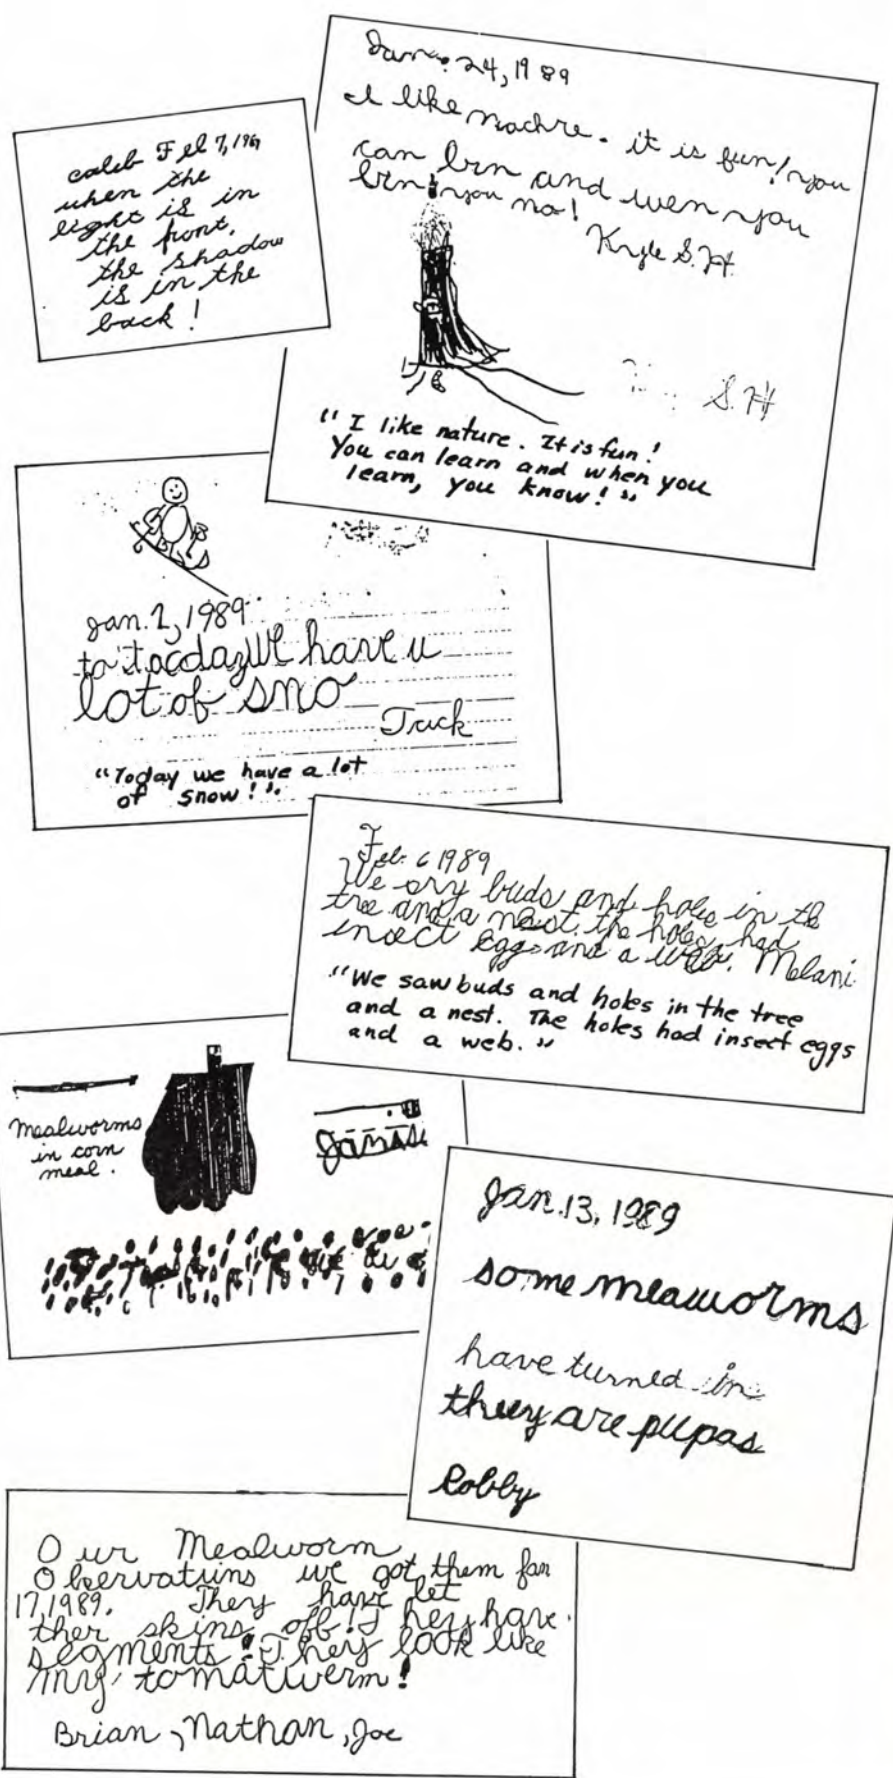 caleb Feb 7, 1989
when the
light is in
the front,
the shadow
is in the
back!
24, 1989
I like nachre. it is fun! you
can lrn and wen you
lrn you no!
Kyle S.H.
S.H
"I like nature. It is fun!
You can learn and when you
learn, you know!"
Jan. 2, 1989
to tocday we have u
lot of sno
Trick
"Today we have a lot
of snow!"
Feb. 6 1989
We buds and holes in the
tree and a nest. the holes had
insect eggs and a web. Melani
"We saw buds and holes in the tree
and a nest. The holes had insect eggs
and a web."
Mealworms
in corn
meal.
Jan. 13, 1989
some meaworms
have turned in
they are pupas
Robby
Our Mealworm
Observatuns we got them Jan
17, 1989. They have let
ther skins off! They have
segments! They look like
my tomatwerm!
Brian, Nathan, Joe